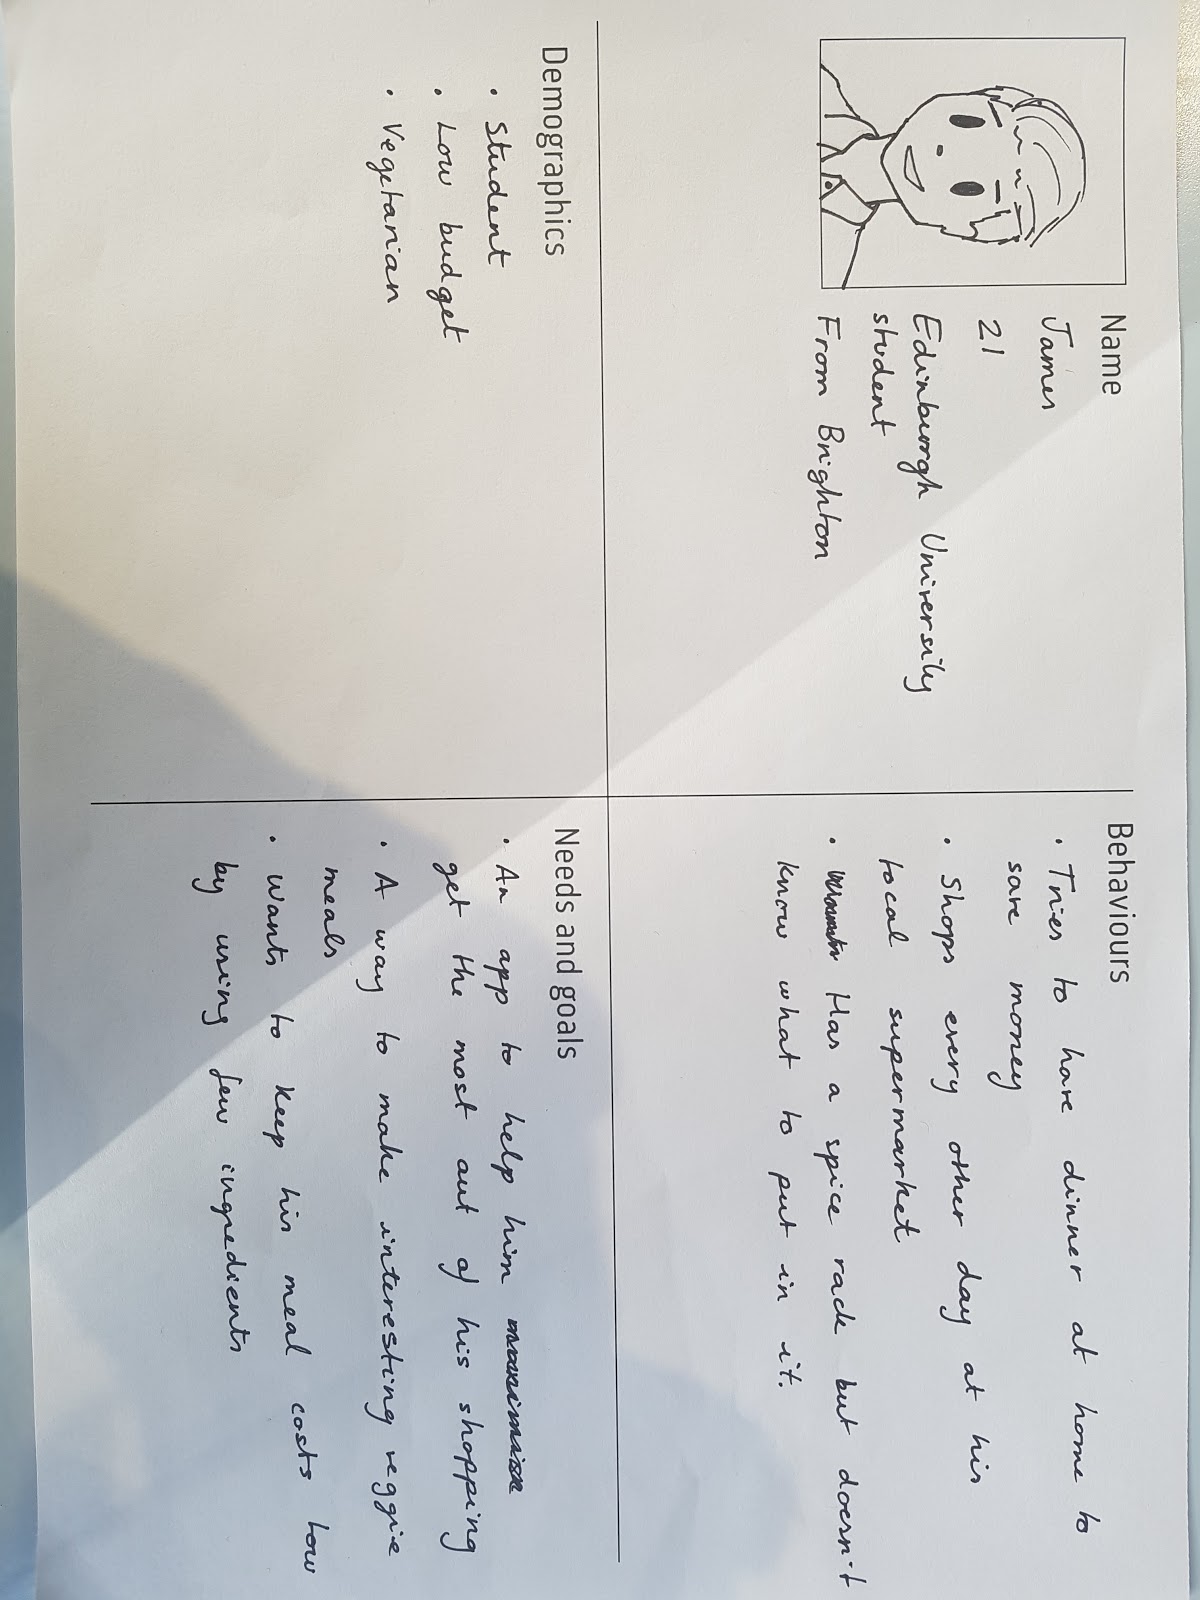 Name
James
21
Edinburgh University
student
From Brighton
Behaviours
• Tries to have dinner at home to
save money
• Shops every other day at his
local supermarket
• Has a spice rack but doesn't
know what to put in it.
Demographics
• Student
• Low budget
• Vegetarian
Needs and goals
• An app to help him
get the most out of his shopping
• A way to make interesting veggie
meals
• Wants to keep his meal costs low
by using few ingredients